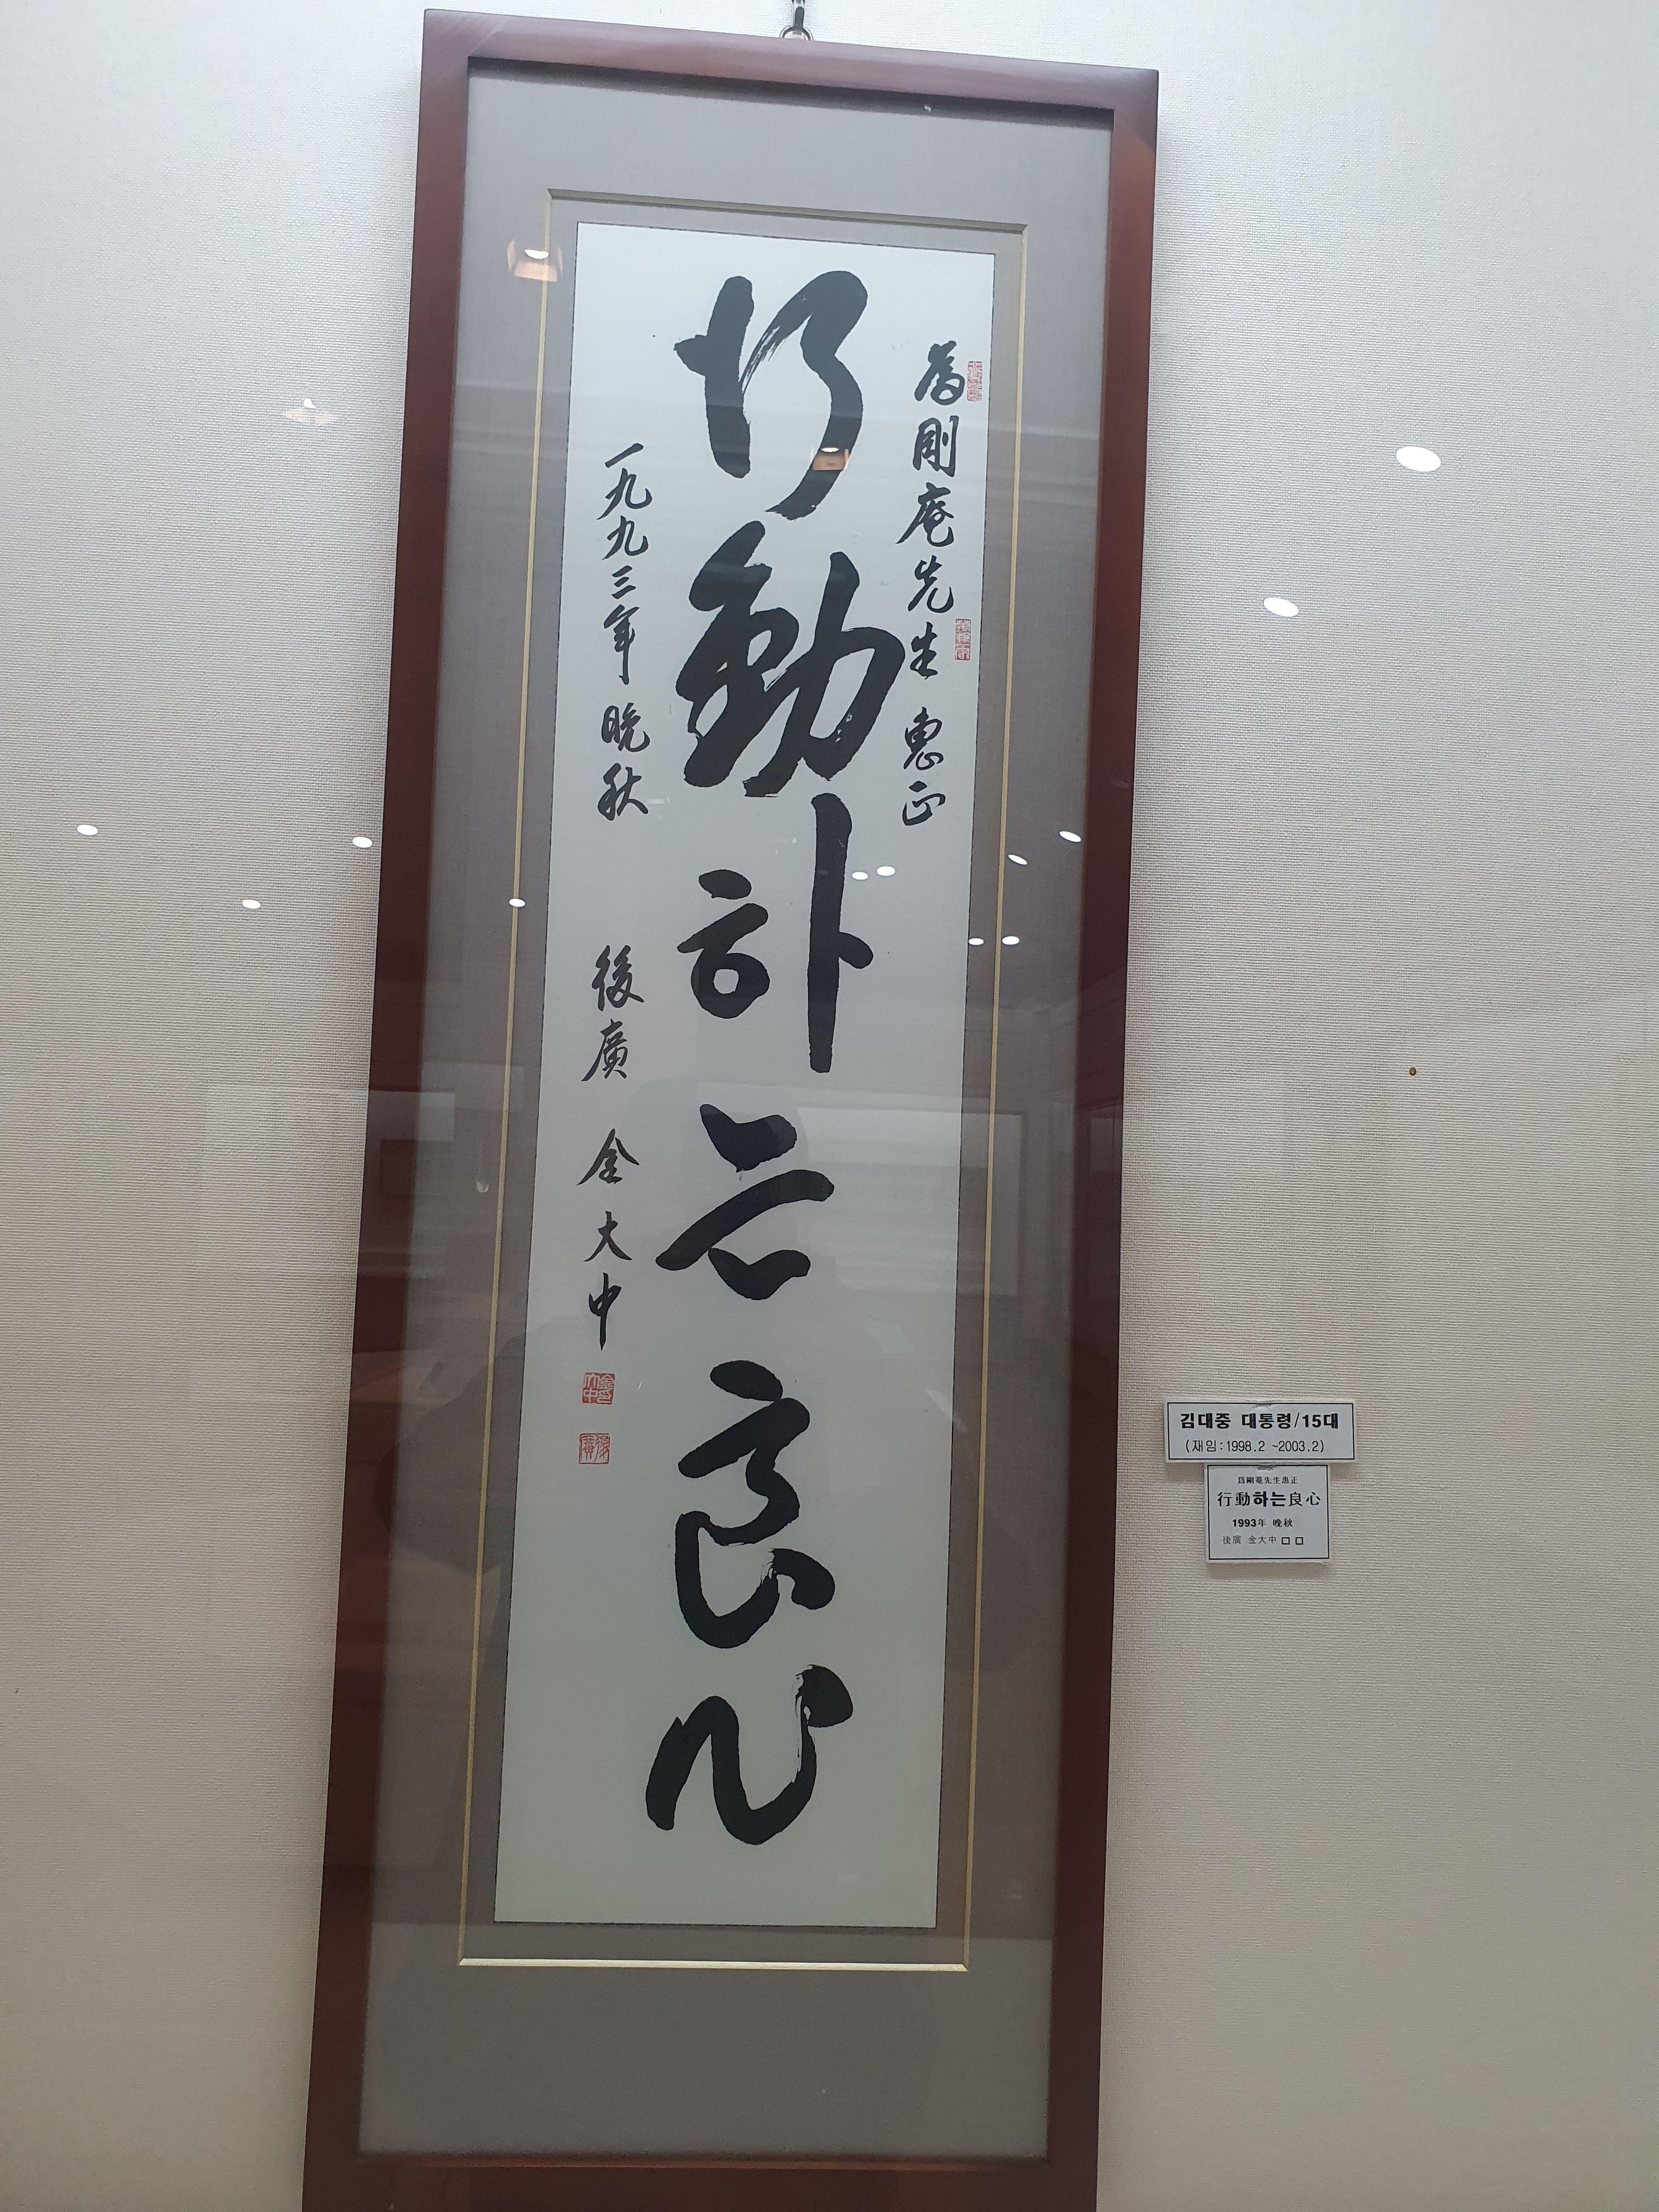 為剛菴先生 惠正
行動하는良心
一九九三年 晩秋 後廣 金大中
김대중 대통령/15대
(재임:1998.2 ~2003.2)
爲剛菴先生惠正
行動하는良心
1993年 晚秋
後廣 金大中 □ □